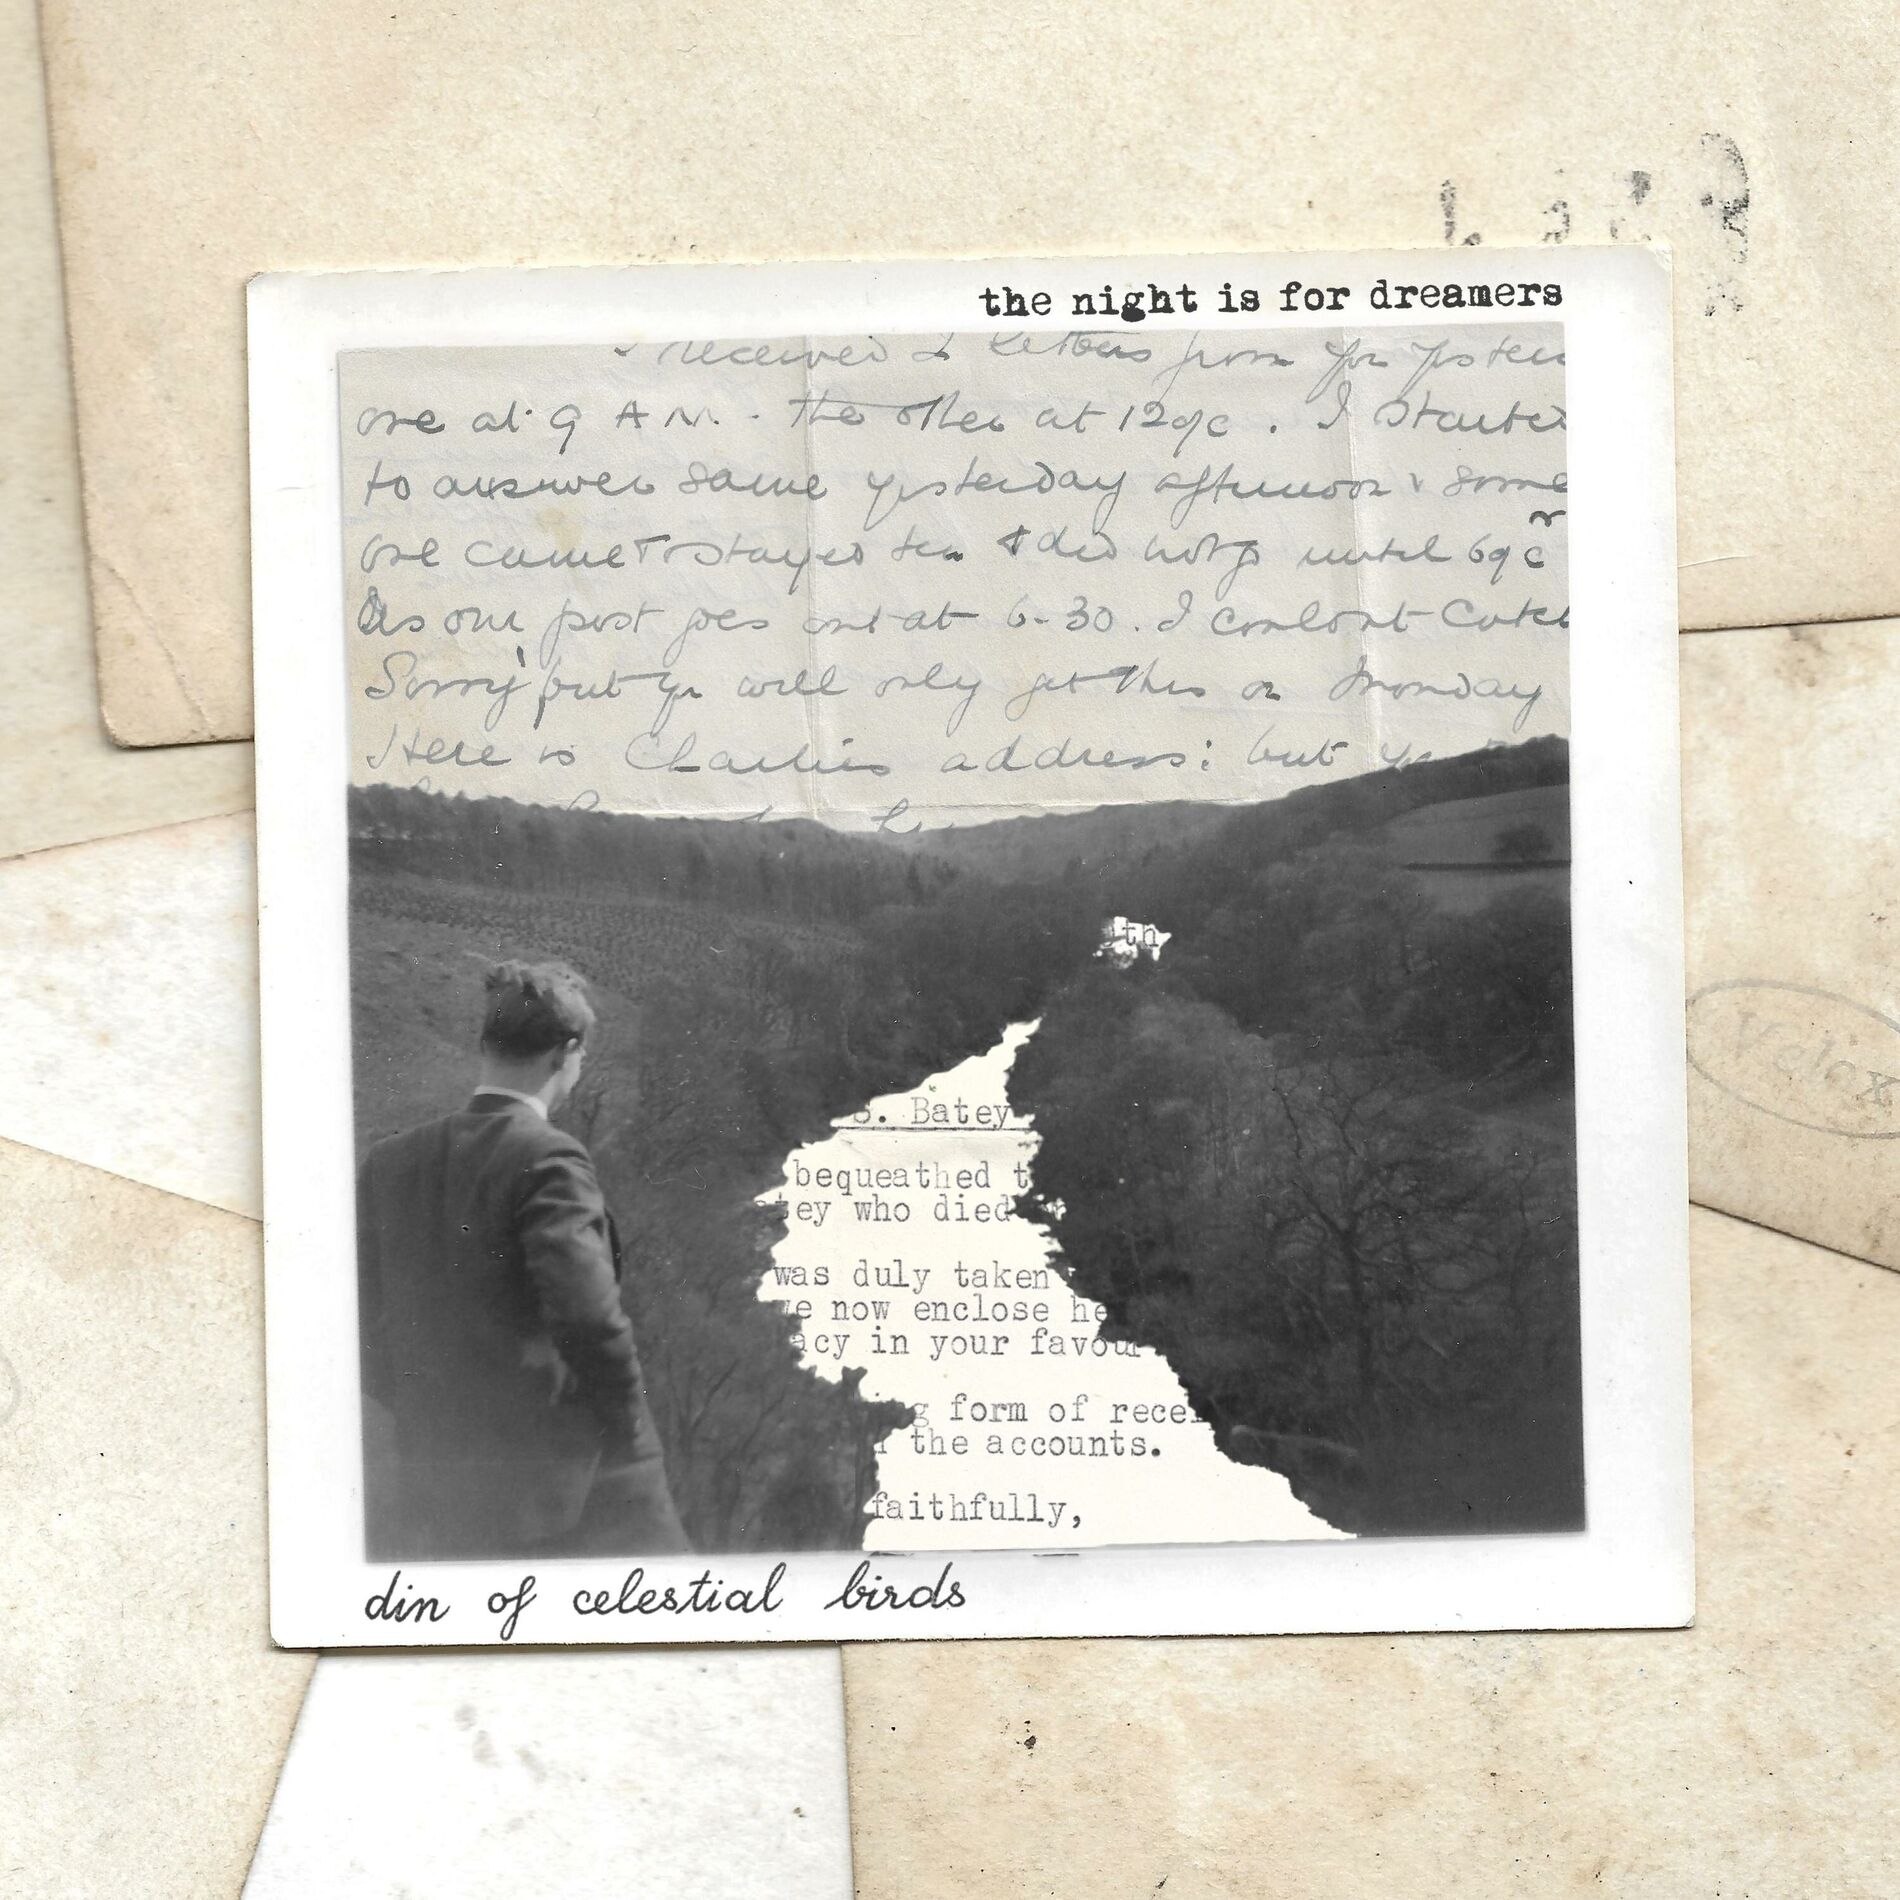 the night is for dreamers
I received 2 letters from you yester
one at 9 AM. the other at 12 o/c. I started
to answer same yesterday afternoon & some
one came & stayed tea & did not go until 6 o/c
As our post goes out at 6-30. I couldnt catch
Sorry but you will only get this on Monday
Here is Charlies address: but
th
S. Batey
bequeathed t
tey who died
was duly taken
we now enclose he
acy in your favour
ng form of recei
the accounts.
faithfully,
Velox
din of celestial birds